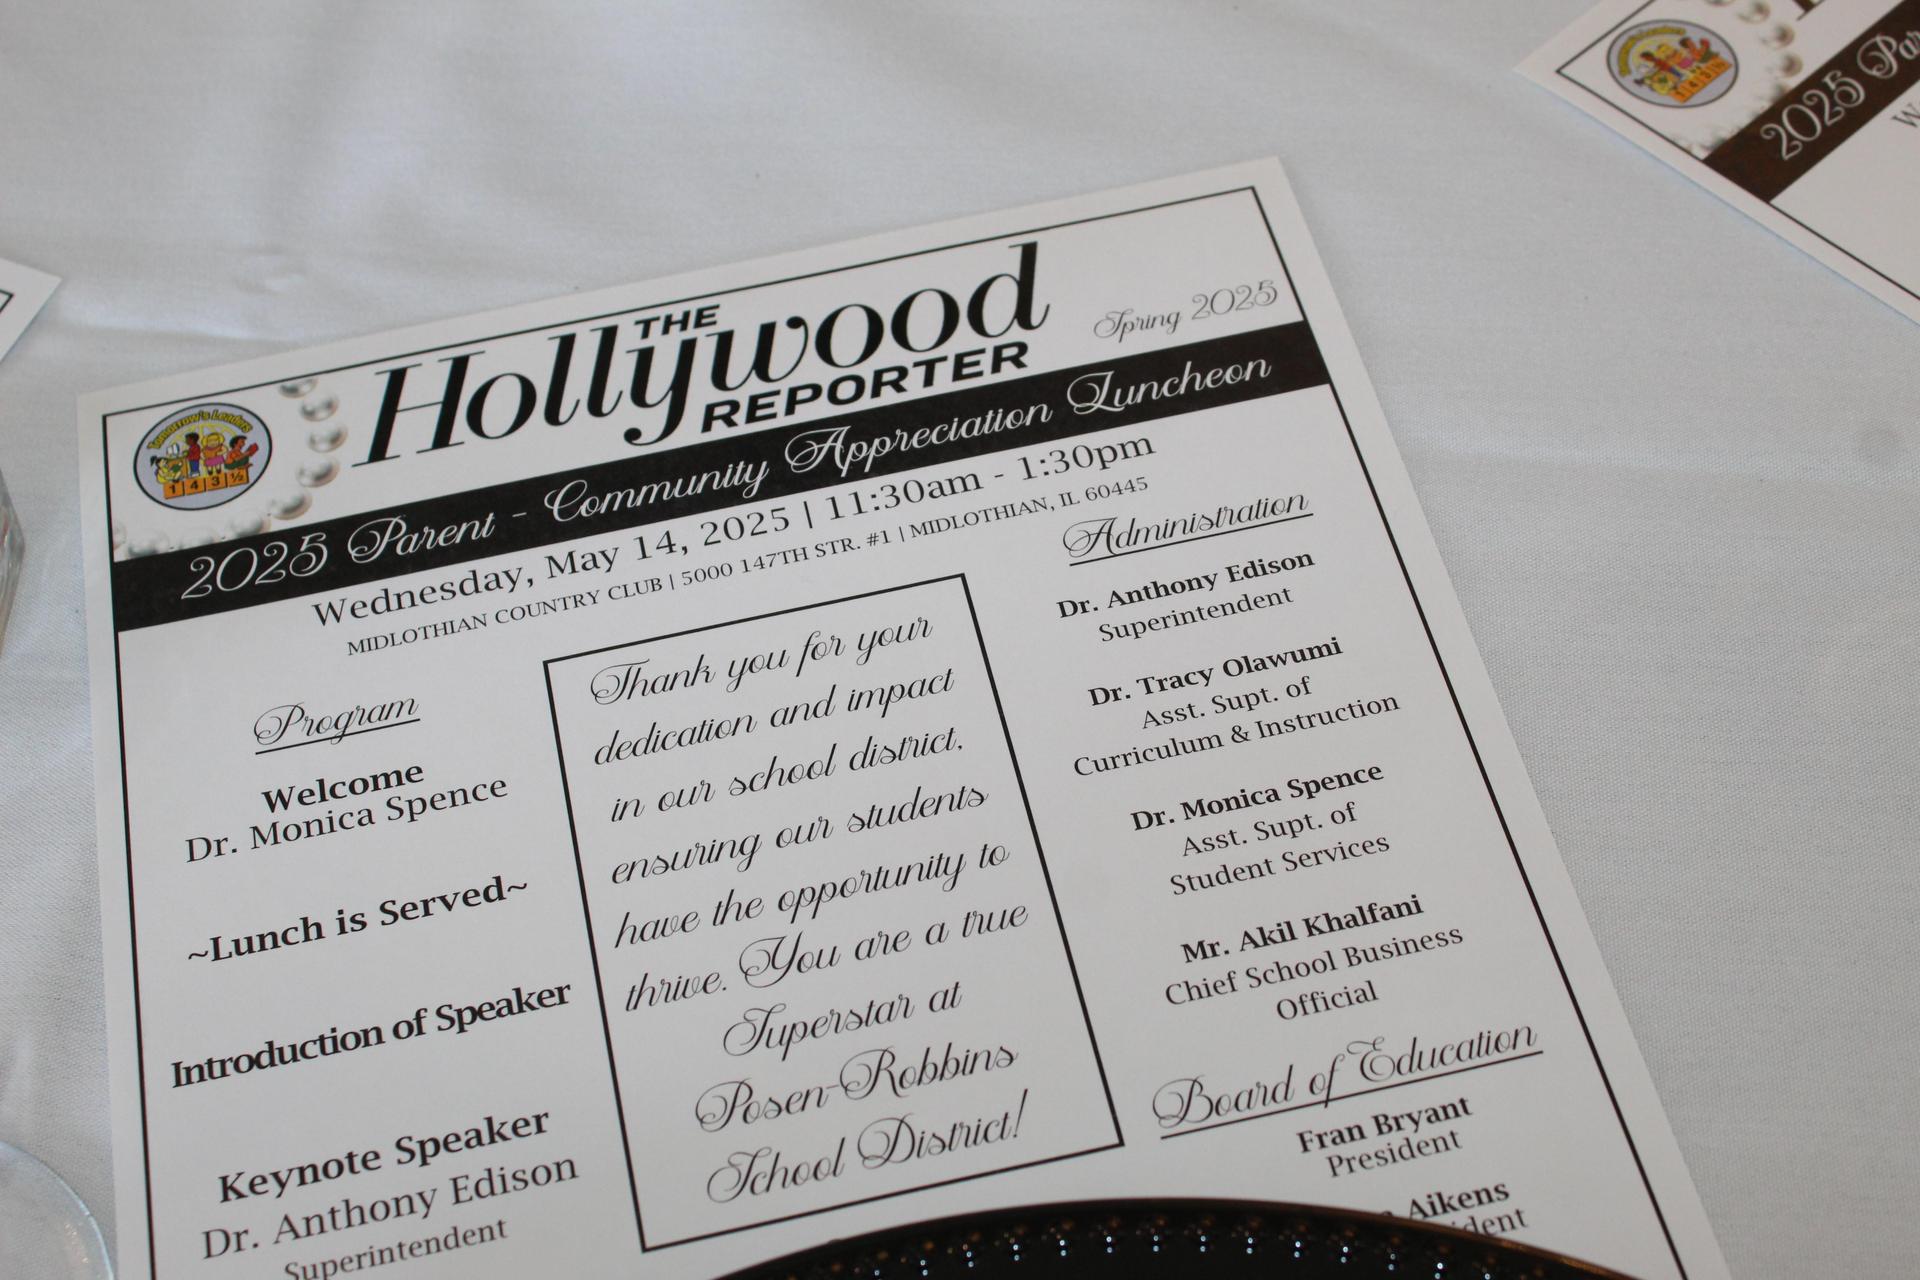 THE
Hollywood
REPORTER
Spring 2025
Tomorrow's Leaders
1 4 3 ½
2025 Parent - Community Appreciation Luncheon
Wednesday, May 14, 2025 | 11:30am - 1:30pm
MIDLOTHIAN COUNTRY CLUB | 5000 147TH STR. #1 | MIDLOTHIAN, IL 60445
Program
Welcome
Dr. Monica Spence
~Lunch is Served~
Introduction of Speaker
Keynote Speaker
Dr. Anthony Edison
Superintendent
Thank you for your
dedication and impact
in our school district,
ensuring our students
have the opportunity to
thrive. You are a true
Superstar at
Posen-Robbins
School District!
Administration
Dr. Anthony Edison
Superintendent
Dr. Tracy Olawumi
Asst. Supt. of
Curriculum & Instruction
Dr. Monica Spence
Asst. Supt. of
Student Services
Mr. Akil Khalfani
Chief School Business
Official
Board of Education
Fran Bryant
President
Aikens
2025